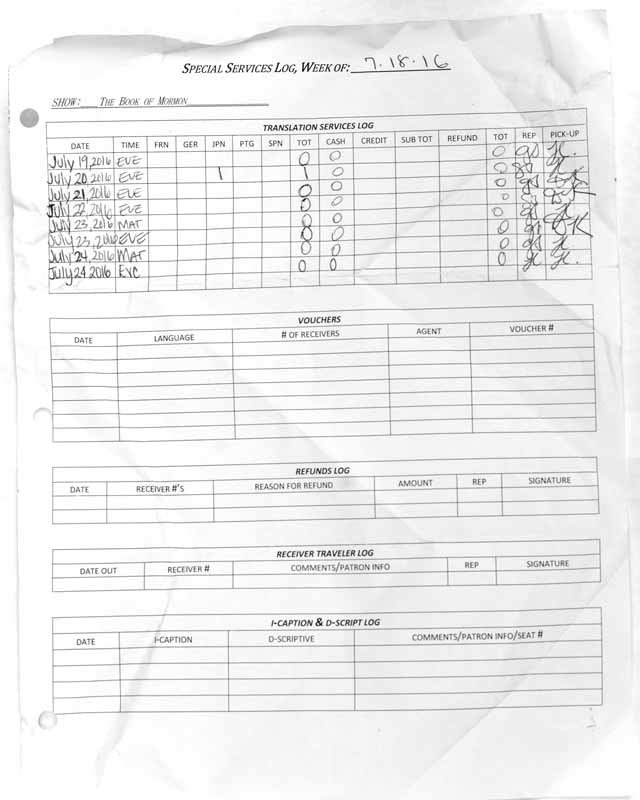 SPECIAL SERVICES LOG, WEEK OF: 7.18.16
SHOW: THE BOOK OF MORMON
TRANSLATION SERVICES LOG
DATE TIME FRN GER JPN PTG SPN TOT CASH CREDIT SUB TOT REFUND TOT REP PICK-UP
July 19, 2016 EVE 0 0 0
July 20, 2016 EVE 1 1 0 0
July 21, 2016 EVE 0 0 0
July 22, 2016 EVE 0 0 0
July 23, 2016 MAT 0 0 0
July 23, 2016 EVE 0 0 0
July 24, 2016 MAT 0 0 0
July 24 2016 EVE 0 0 0
VOUCHERS
DATE LANGUAGE # OF RECEIVERS AGENT VOUCHER #
REFUNDS LOG
DATE RECEIVER #'S REASON FOR REFUND AMOUNT REP SIGNATURE
RECEIVER TRAVELER LOG
DATE OUT RECEIVER # COMMENTS/PATRON INFO REP SIGNATURE
I-CAPTION & D-SCRIPT LOG
DATE I-CAPTION D-SCRIPTIVE COMMENTS/PATRON INFO/SEAT #